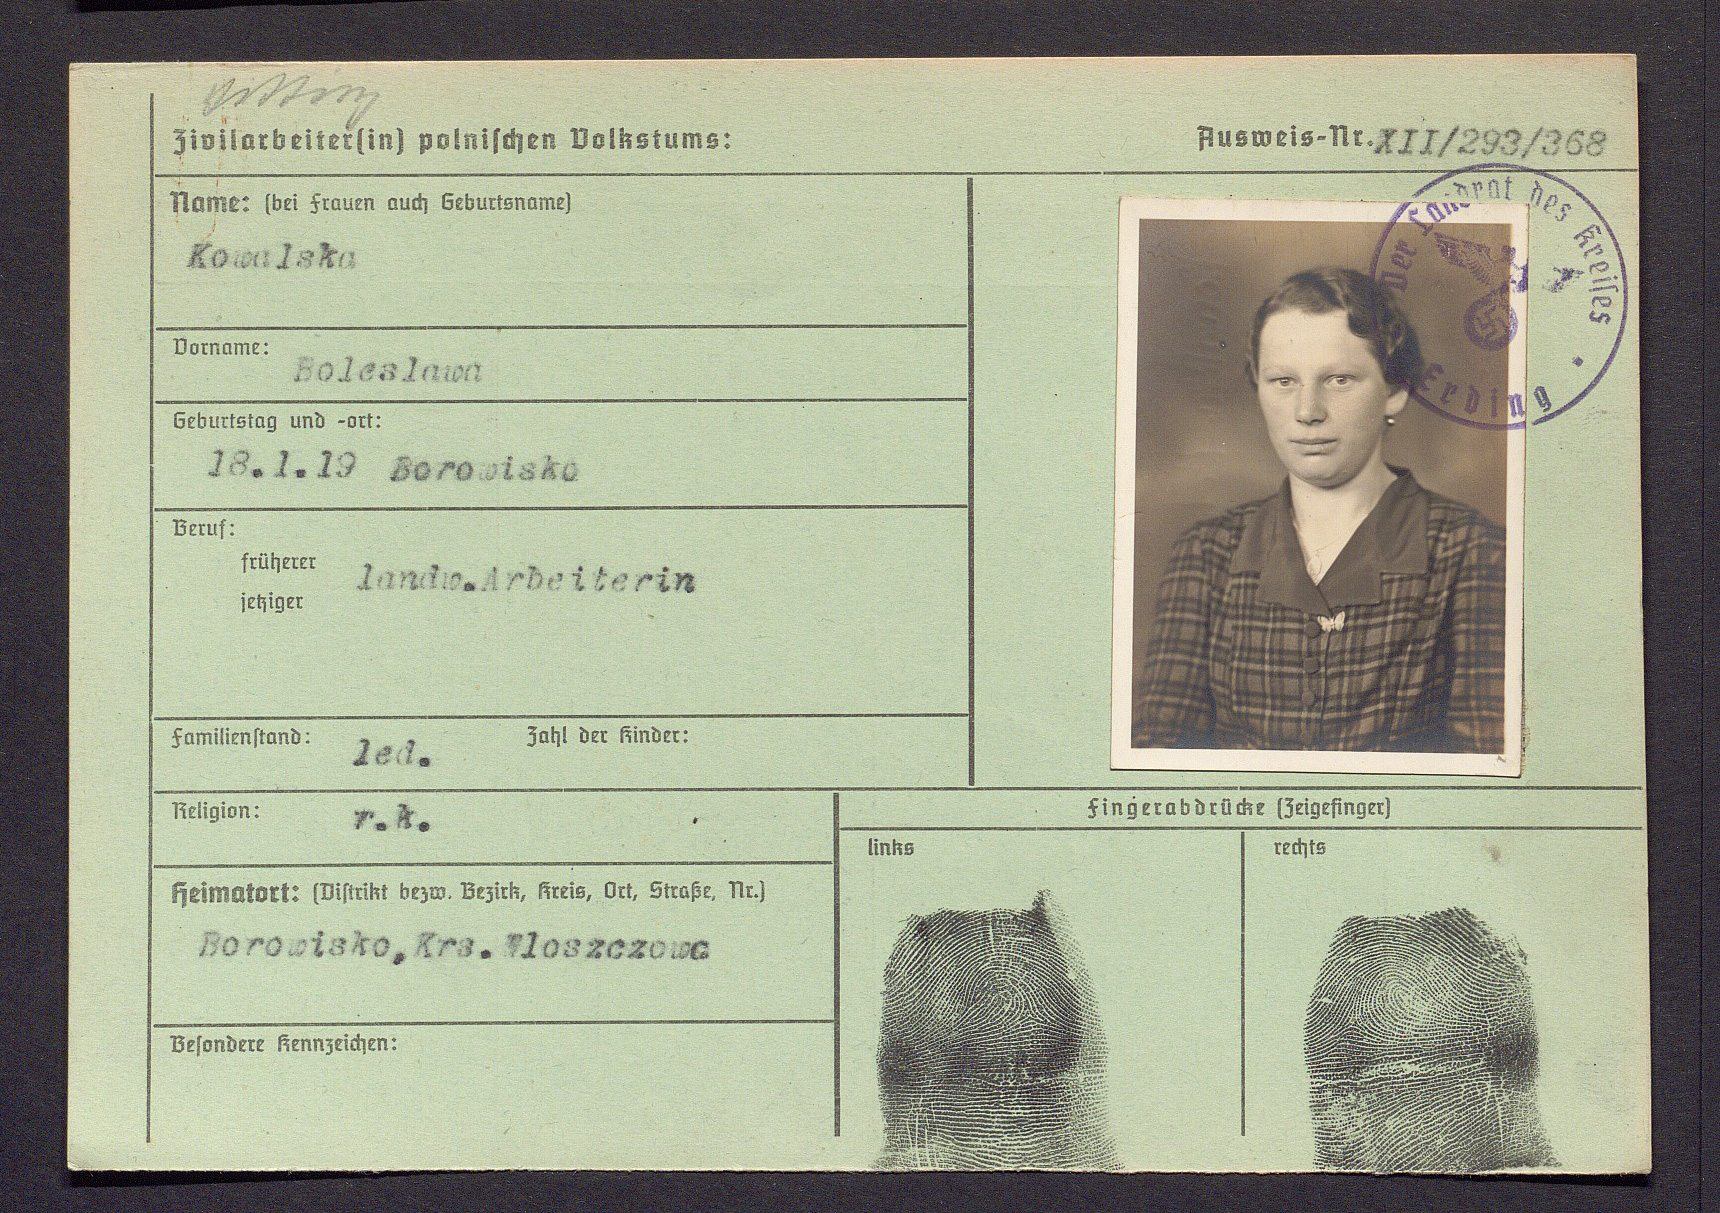 Zivilarbeiter(in) polnischen Volkstums:
Ausweis-Nr. XII/293/368
Name: (bei Frauen auch Geburtsname)
Kowalska
Vorname:
Boleslawa
Geburtstag und -ort:
18.1.19 Borowisko
Beruf:
früherer
landw.Arbeiterin
jetziger
Familienstand: led. Zahl der Kinder:
Religion: r.k.
Heimatort: (Distrikt bezw. Bezirk, Kreis, Ort, Straße, Nr.)
Borowisko,Krs.Wloszczowa
Besondere Kennzeichen:
Der Landrat des Kreises
Erding
Fingerabdrücke (Zeigefinger)
links
rechts